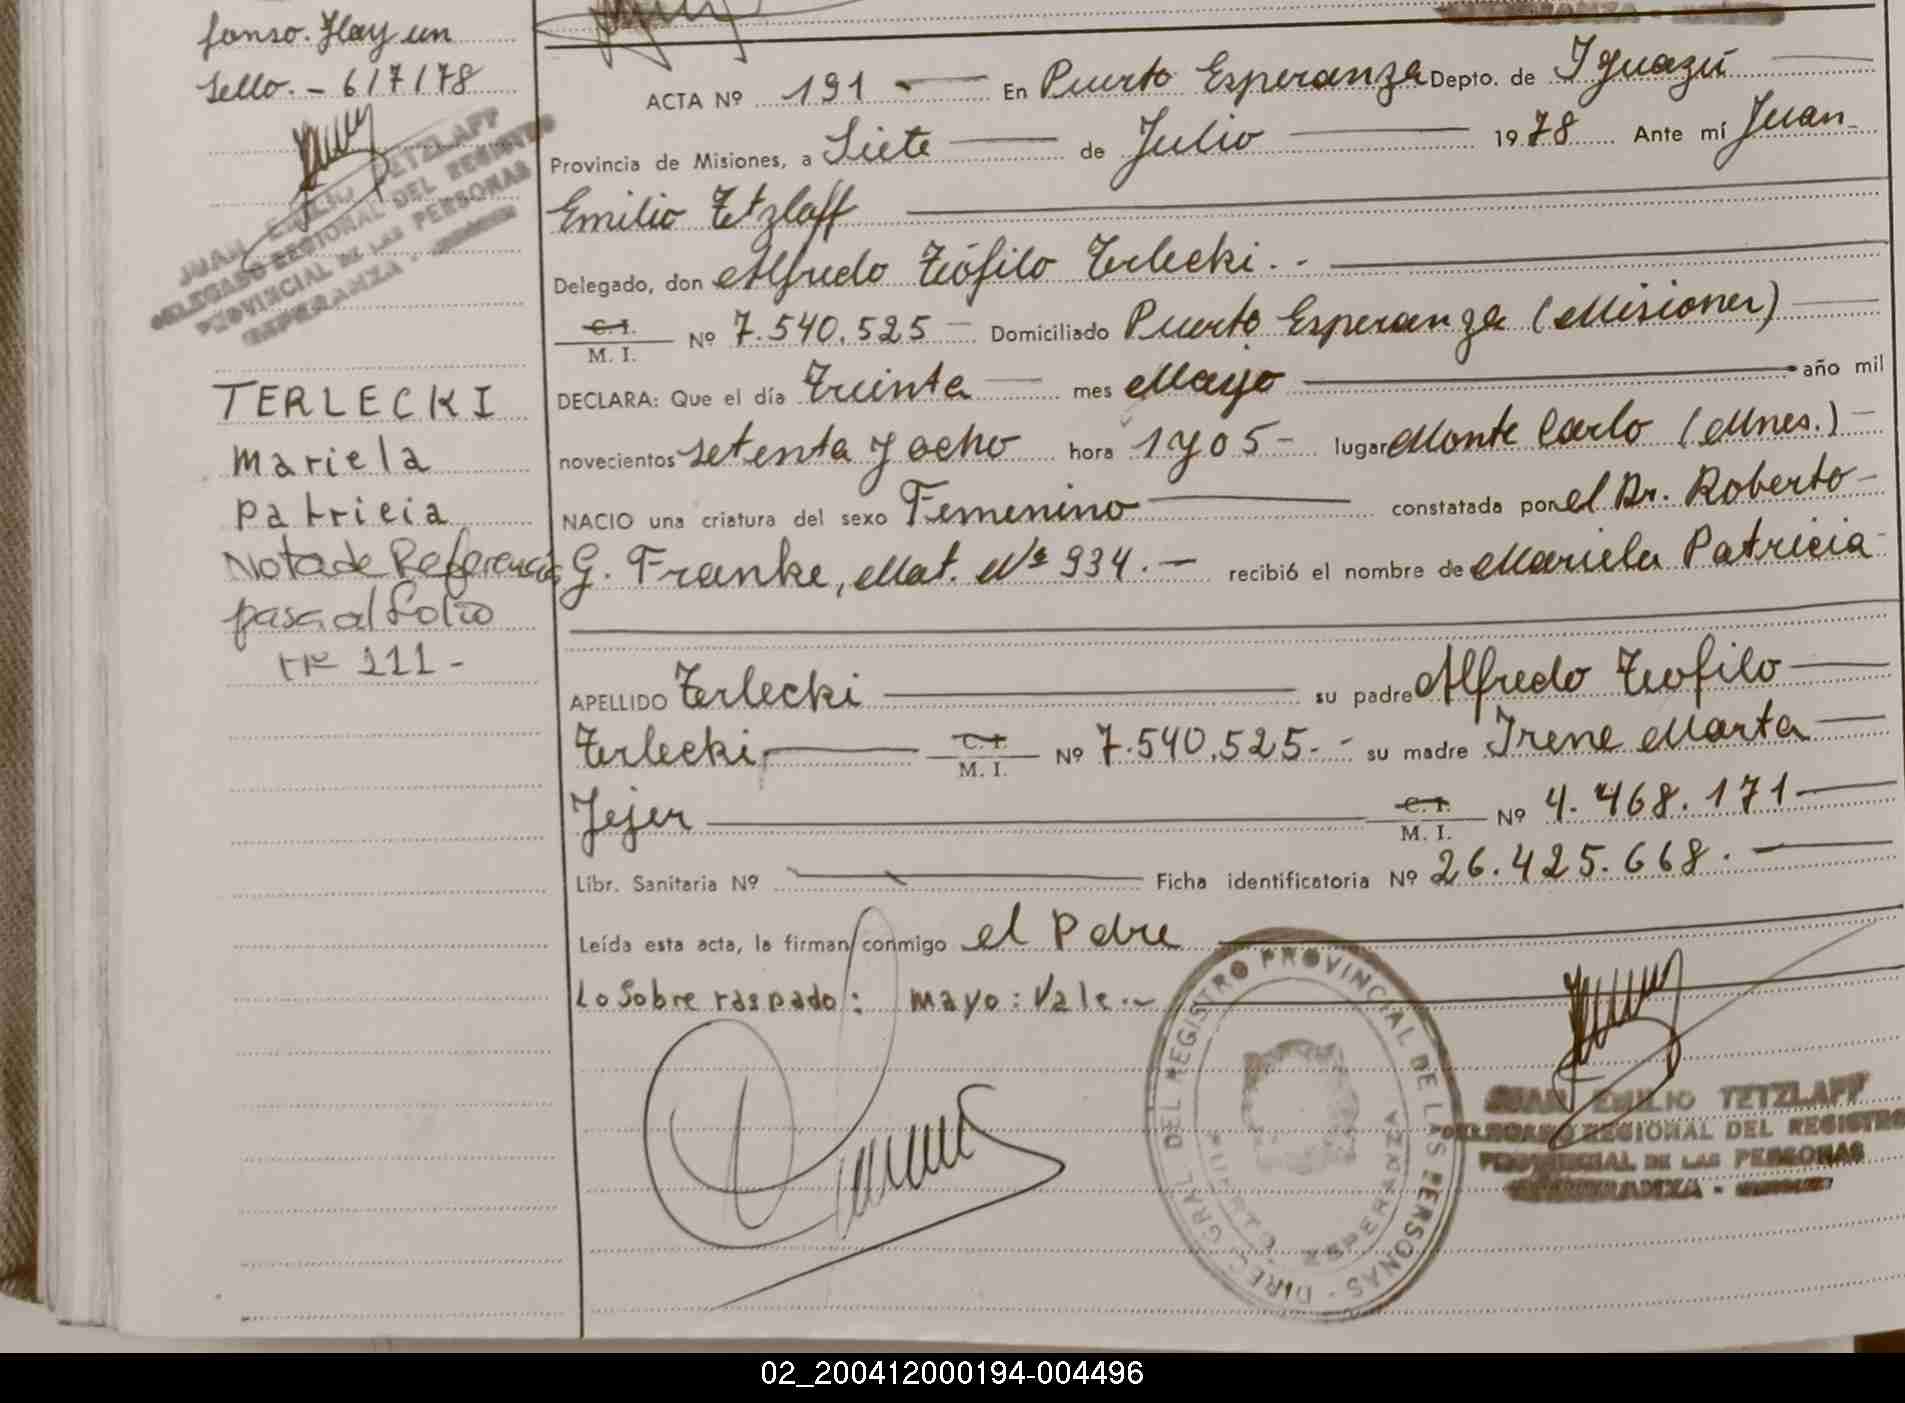 fonso. Hay un
Sello. - 6/7/78
JUAN EMILIO TETZLAFF
DELEGADO REGIONAL DEL REGISTRO
PROVINCIAL DE LAS PERSONAS
ESPERANZA -
TERLECKI
Mariela
Patricia
Nota de Referencia
pasa al folio
Nº 111-
ACTA Nº 191 - En Puerto Esperanza Depto. de Iguazú
Provincia de Misiones, a Siete de Julio 1978 Ante mí Juan
Emilio Tetzlaff
Delegado, don Alfredo Teófilo Terlecki. -
C.I.
M. I. Nº 7.540.525 - Domiciliado Puerto Esperanza (Misiones)
DECLARA: Que el día Treinta mes Mayo año mil
novecientos setenta y ocho hora 1 y 05 - lugar Monte Carlo (Mnes.) -
NACIO una criatura del sexo Femenino constatada por el Dr. Roberto
G. Franke, Mat. Nº 934. - recibió el nombre de Mariela Patricia
APELLIDO Terlecki su padre Alfredo Teofilo
Terlecki C.I. M. I. Nº 7.540.525. - su madre Irene Marta
Jejer C.I. M. I. Nº 4.468.171
Libr. Sanitaria Nº Ficha identificatoria Nº 26.425.668.
Leída esta acta, la firman conmigo el Padre
Lo Sobre raspado: mayo: Vale.-
DIREC. GRAL. DEL REGISTRO PROVINCIAL DE LAS PERSONAS -
PUERTO ESPERANZA
JUAN EMILIO TETZLAFF
DELEGADO REGIONAL DEL REGISTRO
PROVINCIAL DE LAS PERSONAS
ESPERANZA -
02_200412000194-004496